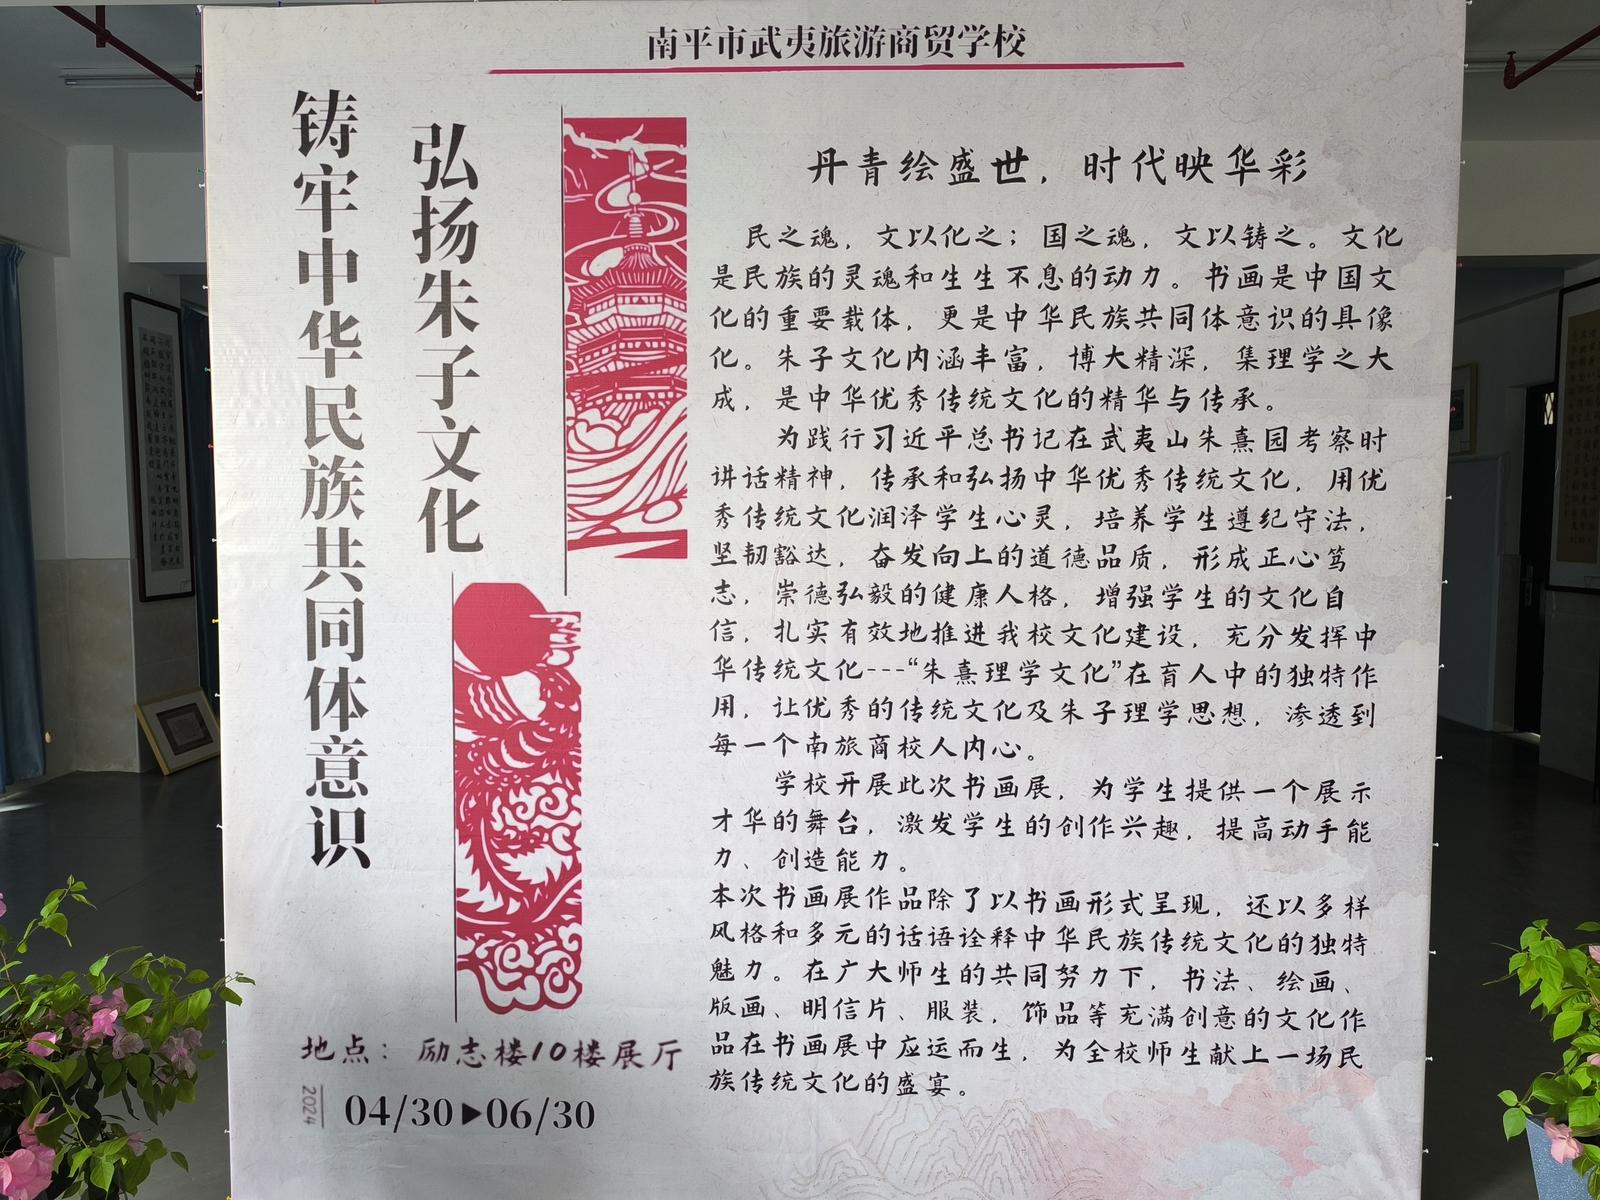 南平市武夷旅游商贸学校
弘扬朱子文化
铸牢中华民族共同体意识
丹青绘盛世，时代映华彩
民之魂，文以化之；国之魂，文以铸之。文化
是民族的灵魂和生生不息的动力。书画是中国文
化的重要载体，更是中华民族共同体意识的具像
化。朱子文化内涵丰富，博大精深，集理学之大
成，是中华优秀传统文化的精华与传承。
为践行习近平总书记在武夷山朱熹园考察时
讲话精神，传承和弘扬中华优秀传统文化，用优
秀传统文化润泽学生心灵，培养学生遵纪守法，
坚韧豁达，奋发向上的道德品质，形成正心笃
志，崇德弘毅的健康人格，增强学生的文化自
信，扎实有效地推进我校文化建设，充分发挥中
华传统文化---“朱熹理学文化”在育人中的独特作
用，让优秀的传统文化及朱子理学思想，渗透到
每一个南旅商校人内心。
学校开展此次书画展，为学生提供一个展示
才华的舞台，激发学生的创作兴趣，提高动手能
力、创造能力。
本次书画展作品除了以书画形式呈现，还以多样
风格和多元的话语诠释中华民族传统文化的独特
魅力。在广大师生的共同努力下，书法、绘画、
版画、明信片、服装，饰品等充满创意的文化作
品在书画展中应运而生，为全校师生献上一场民
族传统文化的盛宴。
地点：励志楼10楼展厅
2024
04/30▶06/30